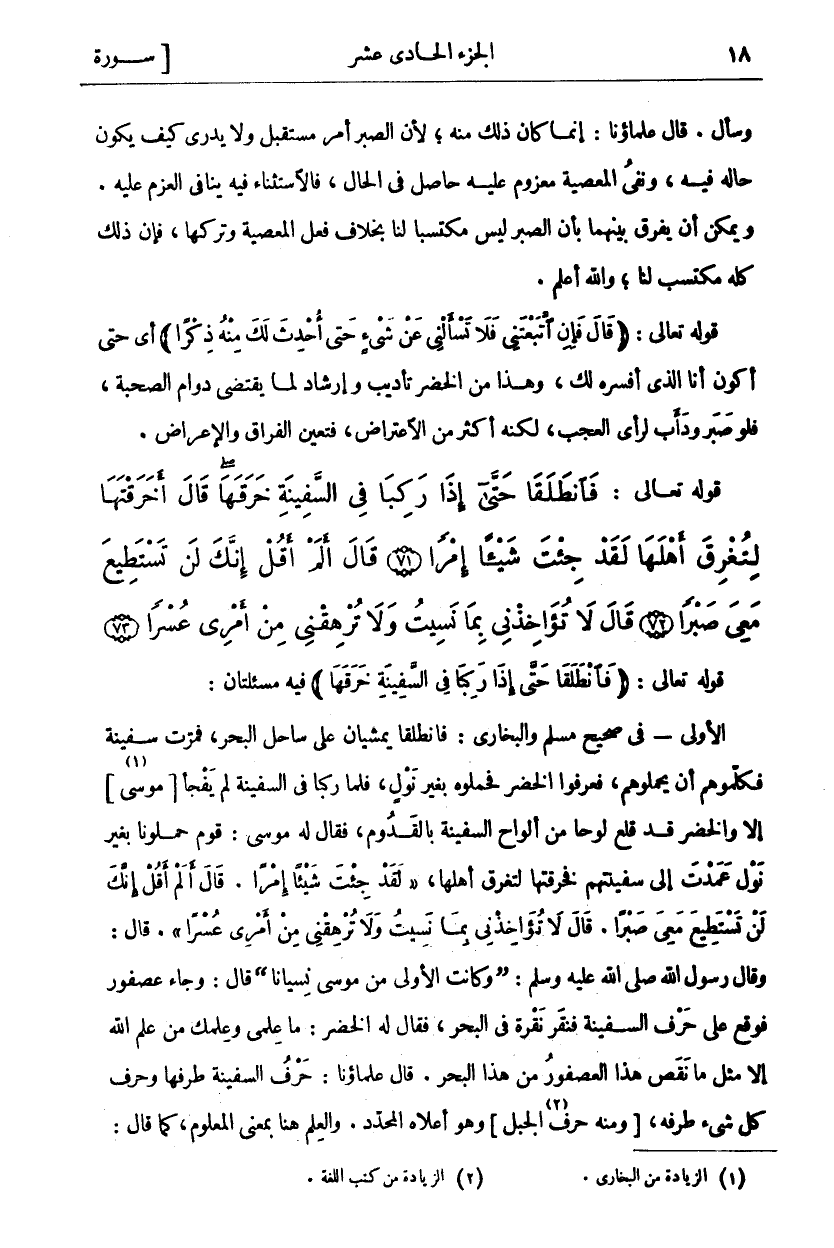 ١٨ الجزء الحادى عشر [ ســورة
وسأل . قال علماؤنا : إنما كان ذلك منه ؛ لأن الصبر أمر مستقبل ولا يدرى كيف يكون
حاله فيه ، ونفىُ المعصية معزوم عليه حاصل فى الحال ، فالاستثناء فيه ينافى العزم عليه .
ويمكن أن يفرق بينهما بأن الصبر ليس مكتسبا لنا بخلاف فعل المعصية وتركها ، فإن ذلك
كله مكتسب لنا ؛ والله أعلم .
قوله تعالى : ﴿ قَالَ فَإِنِ ٱتَّبَعْتَنِى فَلَا تَسْأَلْنِى عَنْ شَىْءٍ حَتَّى أُحْدِثَ لَكَ مِنْهُ ذِكْرًا ﴾ أى حتى
أكون أنا الذى أفسره لك ، وهذا من الخضر تأديب وإرشاد لما يقتضى دوام الصحبة ،
فلو صَبَر ودَأَب لرأى العجب، لكنه أكثر من الاعتراض، فتعين الفراق والإعراض .
قوله تعالى : فَٱنطَلَقَا حَتَّىٰٓ إِذَا رَكِبَا فِى السَّفِينَةِ خَرَقَهَا ۖ قَالَ أَخَرَقْتَهَا
لِتُغْرِقَ أَهْلَهَا لَقَدْ جِئْتَ شَيْئًا إِمْرًا ﴿٧١﴾ قَالَ أَلَمْ أَقُلْ إِنَّكَ لَن تَسْتَطِيعَ
مَعِىَ صَبْرًا ﴿٧٢﴾ قَالَ لَا تُؤَاخِذْنِى بِمَا نَسِيتُ وَلَا تُرْهِقْنِى مِنْ أَمْرِى عُسْرًا ﴿٧٣﴾
قوله تعالى : ﴿ فَٱنْطَلَقَا حَتَّى إِذَا رَكِبَا فِى السَّفِينَةِ خَرَقَهَا ﴾ فيه مسئلتان :
الأولى — فى صحيح مسلم والبخارى : فانطلقا يمشيان على ساحل البحر، فمرّت سفينة
فكلّموهم أن يحملوهم، فعرفوا الخضر فحملوه بغير نَوْلٍ، فلما ركبا فى السفينة لم يَفْجأ [ موسى ] (١)
إلا والخضر قد قلع لوحا من ألواح السفينة بالقَدُوم، فقال له موسى : قوم حملونا بغير
نَوْل عَمَدْتَ إلى سفينتهم فخرقتها لتغرق أهلها، « لَقَدْ جِئْتَ شَيْئًا إِمْرًا . قَالَ أَلَمْ أَقُلْ إِنَّكَ
لَنْ تَسْتَطِيعَ مَعِىَ صَبْرًا . قَالَ لَا تُؤَاخِذْنِى بِمَا نَسِيتُ وَلَا تُرْهِقْنِى مِنْ أَمْرِى عُسْرًا » . قال :
وقال رسول الله صلى الله عليه وسلم : ”وكانت الأولى من موسى نِسيانا“ قال : وجاء عصفور
فوقع على حَرْف السفينة فنقَر نَقْرة فى البحر ، فقال له الخضر : ما عِلمى وعِلمك من علم الله
إلا مثل ما نَقَص هذا العصفورُ من هذا البحر . قال علماؤنا : حَرْفُ السفينة طرفها وحرف
كل شىء طرفه، [ ومنه حرف الجبل ] (٢) وهو أعلاه المحدّد . والعِلم هنا بمعنى المعلوم، كما قال :
(١) الزيادة من البخارى . (٢) الزيادة من كتب اللغة .